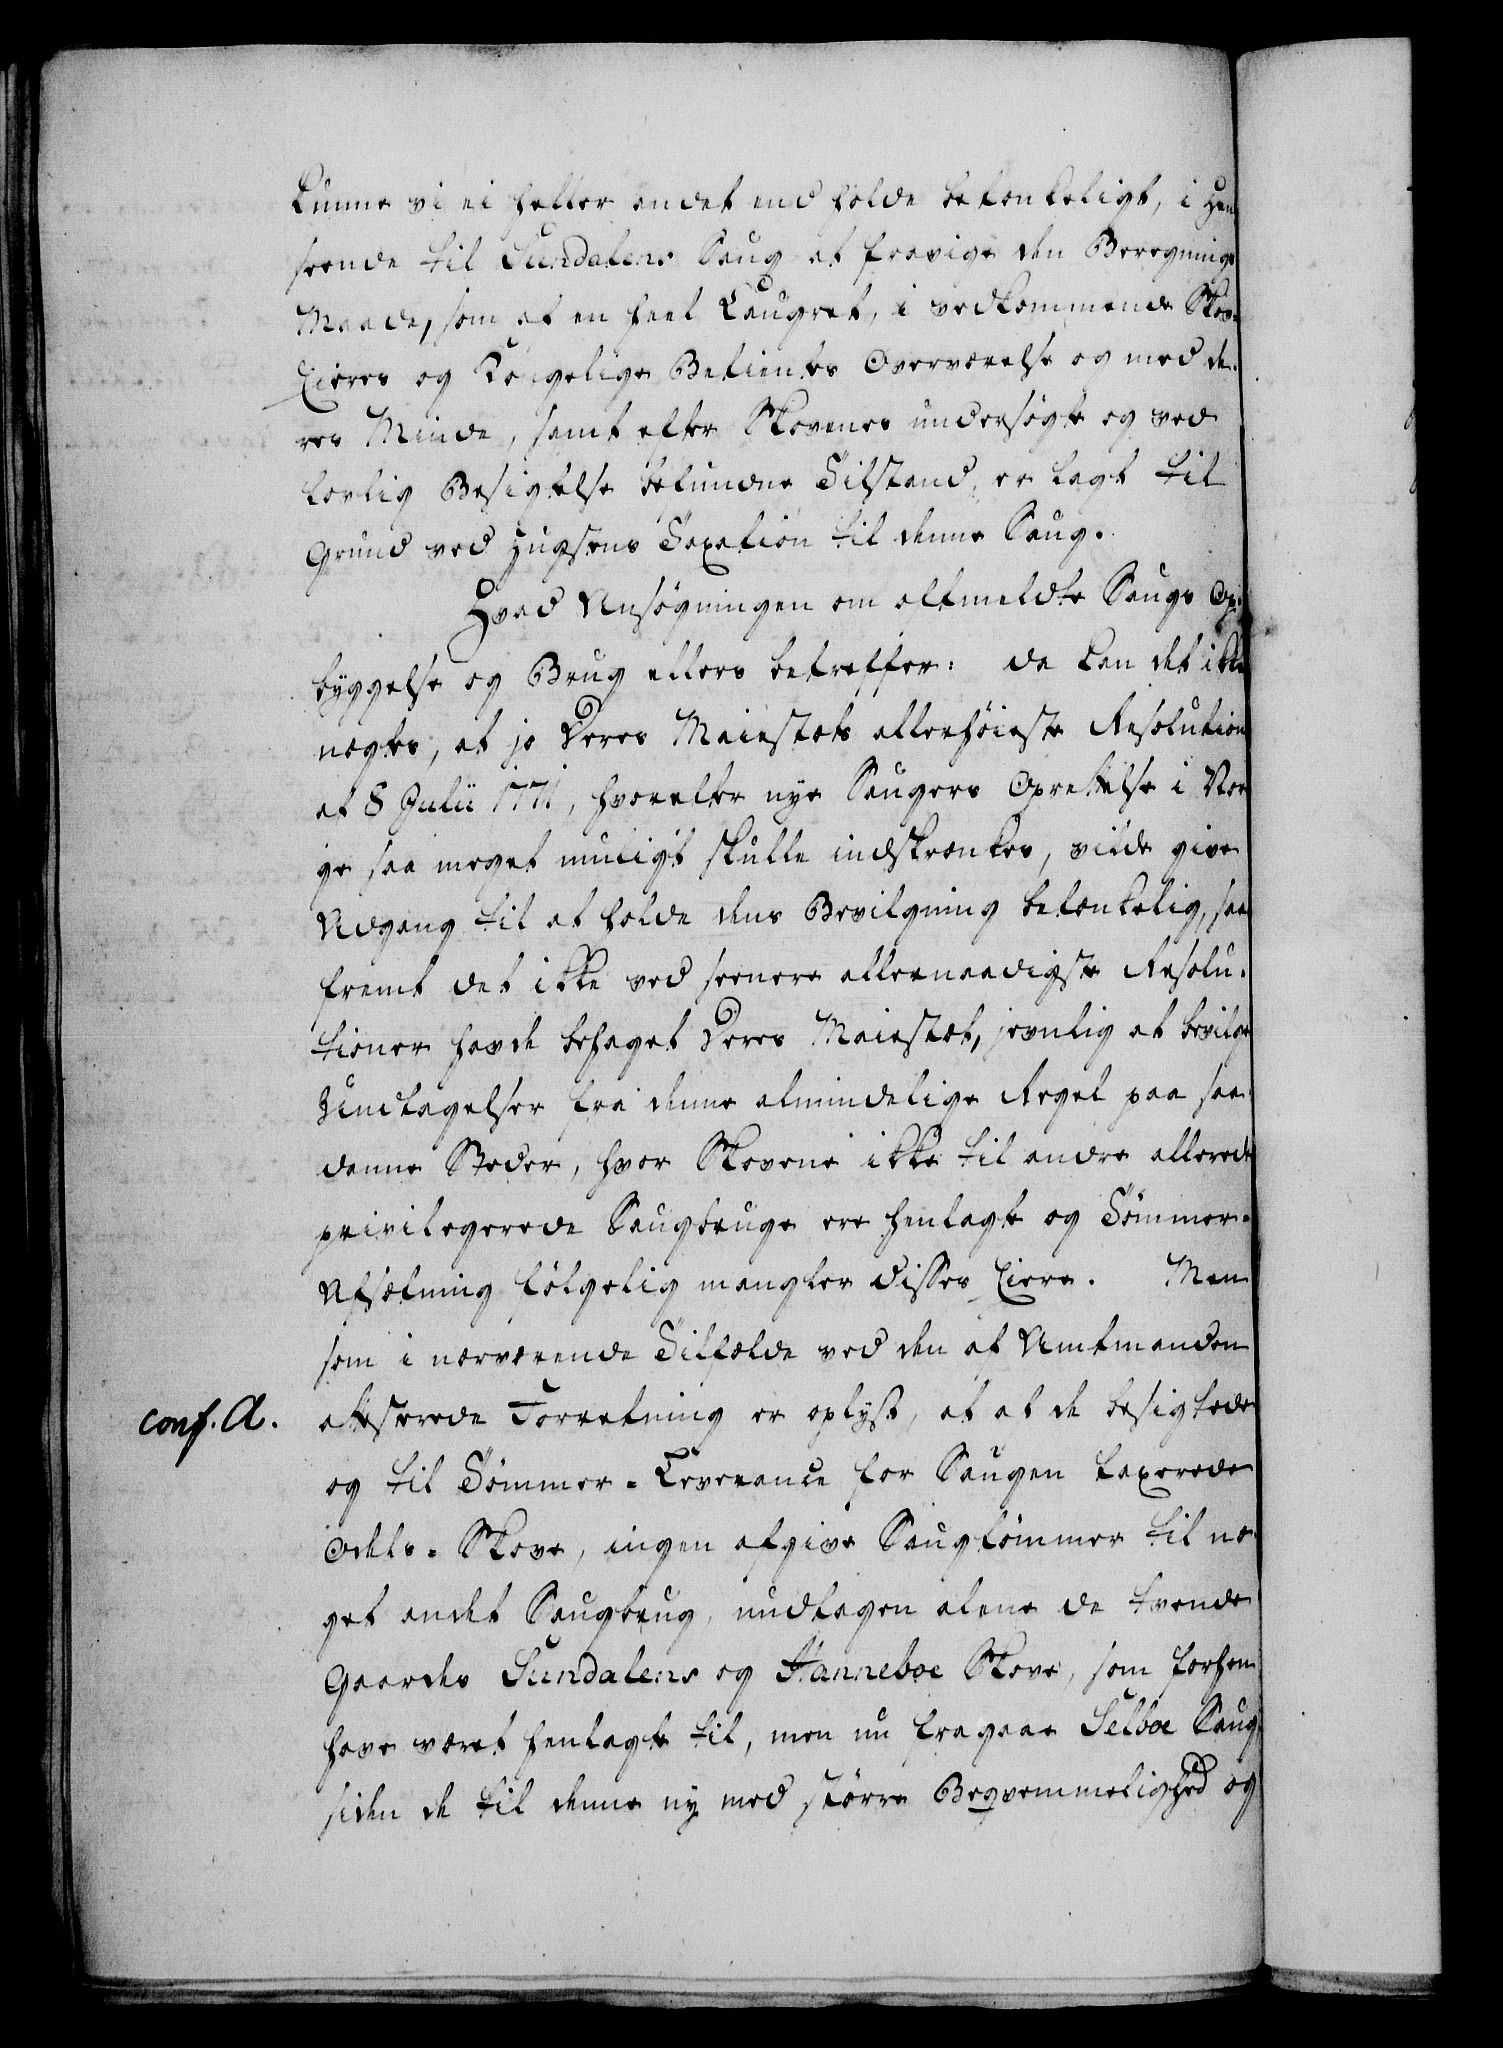 kunne vi ei heller andet end holde betænkeligt, i Hen
seende til Sundalens Saug at fravige den Beregnings
Maade, som af en heel Laugret, i vedkommende Skov-
Eieres og Kongelige Betientes Overværelse og med de-
res Minde, samt efter Skovenes undersøgte og ved
lovlig Besigtelse befundne Tilstand, er lagt til
Grund ved Hugstens Taxation til denne Saug.
Hvad Ansøgningen om altmeldte Saugs Op-
byggelse og Brug ellers betreffer: da kan det ikke
negtes, at jo Deres Maiestæts allerhøieste Resolution
af 8 Julii 1771, hvorefter nye Saugers Oprettelse i Nor
ge saa meget muligt skulle indskrænkes, vilde give
Adgang til at holde dens Bevilgning betænkelig, saa
fremt det ikke ved seenere allernaadigste Resolu-
tioner havde behaget Deres Maiestæt, jevnlig at bevilge
Undtagelser fra denne almindelige Regel paa saa-
danne Steder, hvor Skovene ikke til andre allerede
privilegerede Saugbruge ere henlagte og Tømmer-
Afsætning følgelig mangler disses Eiere. Men
som i nærværende Tilfælde ved den af Amtmanden
conf. A. attesterede Forretning er oplyst, at af de besigtede
og til Tømmer-Leverance for Saugen taxerede
Odels-Skove, ingen afgive Saugtømmer til no-
get andet Saugbrug, undtagen alene de tvende
Gaardes Sundalens og Hanneboe Skove, som forhen
have været henlagte til, men nu fragaae Selboe Saug
siden de til denne ny med større Beqvemmelighed og